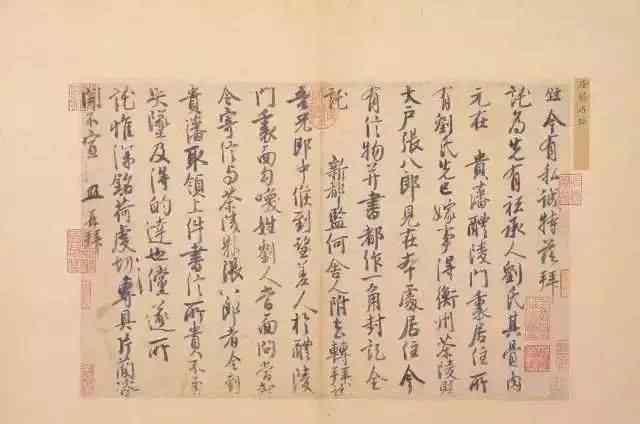 今有私誠特茲拜
託為先有祗承人劉氏其骨肉
元在 貴藩醴陵門裏居住所
有劉氏先已嫁事得衡州茶陵縣
大户張八郎見在本處居住今
有信物并書都作一角封記全
託 新都監何舍人附去轉拜託
吾兄郎中候到望差人於醴陵
門裏面勾喚姓劉人當面問當
令寄信与茶陵縣張八郎者令到
貴藩取領上件書信所貴不至
失墜及得的達也儻遂所
託惟深銘荷虔切專具片簡咨
聞不宣 再拜